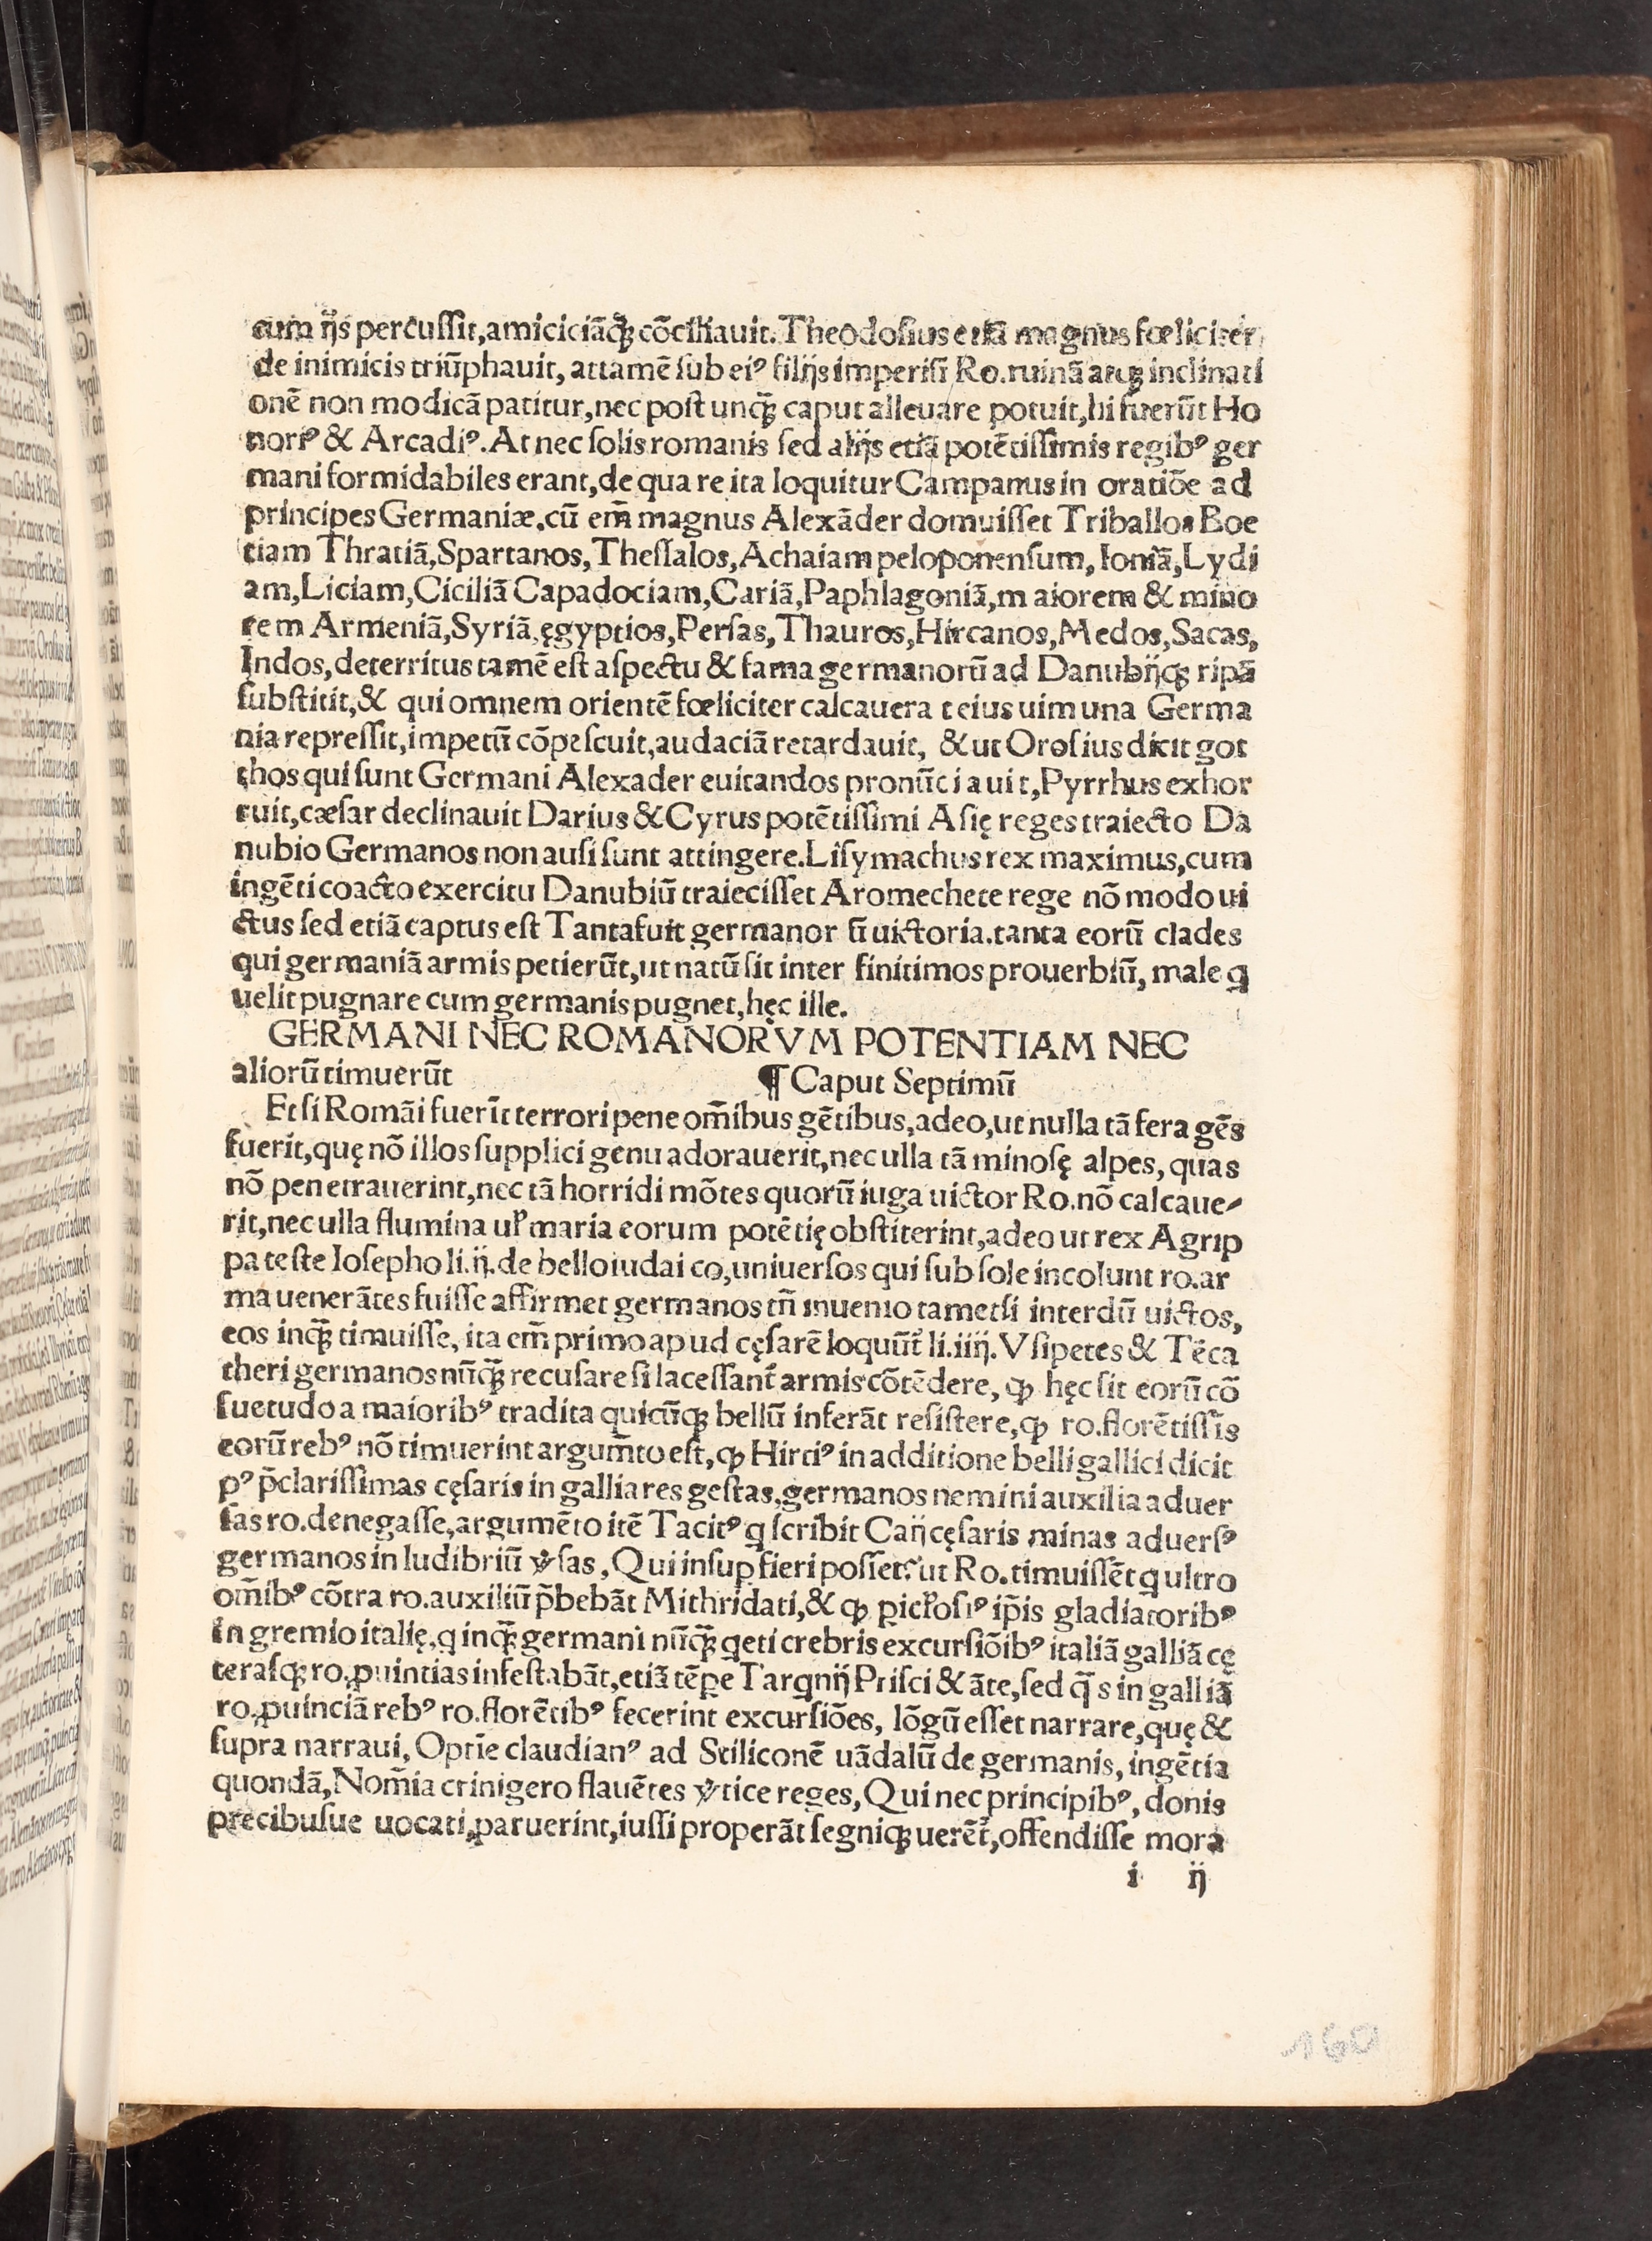 cum ijs percussit, amiciciãq̃ꝫ cõciliauit. Theodosius etiã magnus fœliciter
de inimicis triũphauit, attamẽ sub eiꝰ filijs imperiũ Ro. ruinã atqꝫ inclinati
onẽ non modicã patitur, nec post unq̃ꝫ caput alleuare potuit, hi fuerũt Ho
noriꝰ & Arcadiꝰ. At nec solis romanis sed alijs etiã potẽtissimis regibꝰ ger
mani formidabiles erant, de qua re ita loquitur Campanus in oratiõe ad
principes Germaniæ. cũ em̃ magnus Alexãder domuisset Triballos Boe
tiam Thratiã, Spartanos, Thessalos, Achaiam peloponensum, Ioniã, Lydi
am, Liciam, Ciciliã Capadociam, Cariã, Paphlagoniã, maiorem & mino
rem Armeniã, Syriã, ęgyptios, Persas, Thauros, Hircanos, Medos, Sacas,
Indos, deterritus tamẽ est aspectu & fama germanorũ ad Danubijqꝫ ripã
substitit, & qui omnem orientẽ fœliciter calcauera t eius uim una Germa
nia repressit, impetũ cõpescuit, audaciã retardauit, & ut Orosius dicit got
thos qui sunt Germani Alexader euitandos pronũciauit, Pyrrhus exhor
ruit, cæsar declinauit Darius & Cyrus potẽtissimi Asię reges traiecto Da
nubio Germanos non ausi sunt attingere. Lisymachus rex maximus, cum
ingẽti coacto exercitu Danubiũ traiecisset Aromechete rege nõ modo ui
ctus sed etiã captus est Tanta fuit germanor ũ uictoria. tanta eorũ clades
qui germaniã armis petierũt, ut natũ sit inter finitimos prouerbiũ, male q
uelit pugnare cum germanis pugnet, hęc ille.
GERMANI NEC ROMANORVM POTENTIAM NEC
aliorũ timuerũt ¶ Caput Septimũ
Et si Romãi fuerĩt terrori pene om̃ibus gẽtibus, adeo, ut nulla tã fera gẽs
fuerit, quę nõ illos supplici genu adorauerit, nec ulla tã minosę alpes, quas
nõ penetrauerint, nec tã horridi mõtes quorũ iuga uictor Ro. nõ calcaue⸗
rit, nec ulla flumina ul̃ maria eorum potẽtię obstiterint, adeo ut rex Agrip
pa teste Iosepho li. ij. de bello iudaico, uniuersos qui sub sole incolunt ro. ar
ma uenerãtes fuisse affirmet germanos tñ inuenio tametsi interdũ uictos,
eos inq̃ꝫ timuisse, ita em̃ primo apud cęsarẽ loquũt᷑ li. iiij. Vsipetes & Tẽca
theri germanos nũq̃ꝫ recusare si lacessant᷑ armis cõtẽdere, ꝙ hęc sit eorũ cõ
suetudo a maioribꝰ tradita quicũqꝫ bellũ inferãt resistere, ꝙ ro. florẽtissĩs
eorũ rebꝰ nõ timuerint argum̃to est, ꝙ Hirtiꝰ in additione belli gallici dicit
pꝰ p̃clarissimas cęsaris in gallia res gestas, germanos nemini auxilia aduer
sas ro. denegasse, argumẽto itẽ Tacitꝰ q scribit Caij cęsaris minas aduersꝰ
germanos in ludibriũ ꝟsas, Qui insuꝑ fieri posset? ut Ro. timuissẽt q ultro
om̃ibꝰ cõtra ro. auxiliũ p̃bebãt Mithridati, & ꝙ picl̃osiꝰ ip̃is gladiatoribꝰ
in gremio italię, q inq̃ꝫ germani nũq̃ꝫ qeti crebris excursiõibꝰ italiã galliã cę
terasqꝫ ro. ꝓuintias infestabãt, etiã tẽꝑe Tarqnij Prisci & ãte, sed q̃s in galliã
ro. ꝓuinciã rebꝰ ro. florẽtibꝰ fecerint excursiões, lõgũ esset narrare, quę &
supra narraui, Optĩe claudianꝰ ad Stiliconẽ uãdalũ de germanis, ingẽtia
quondã, Nom̃ia crinigero flauẽtes ꝟtice reges, Qui nec principibꝰ, donis
precibusue uocati, paruerint, iussi properãt segniqꝫ uerẽt᷑, offendisse mora
i ij
160